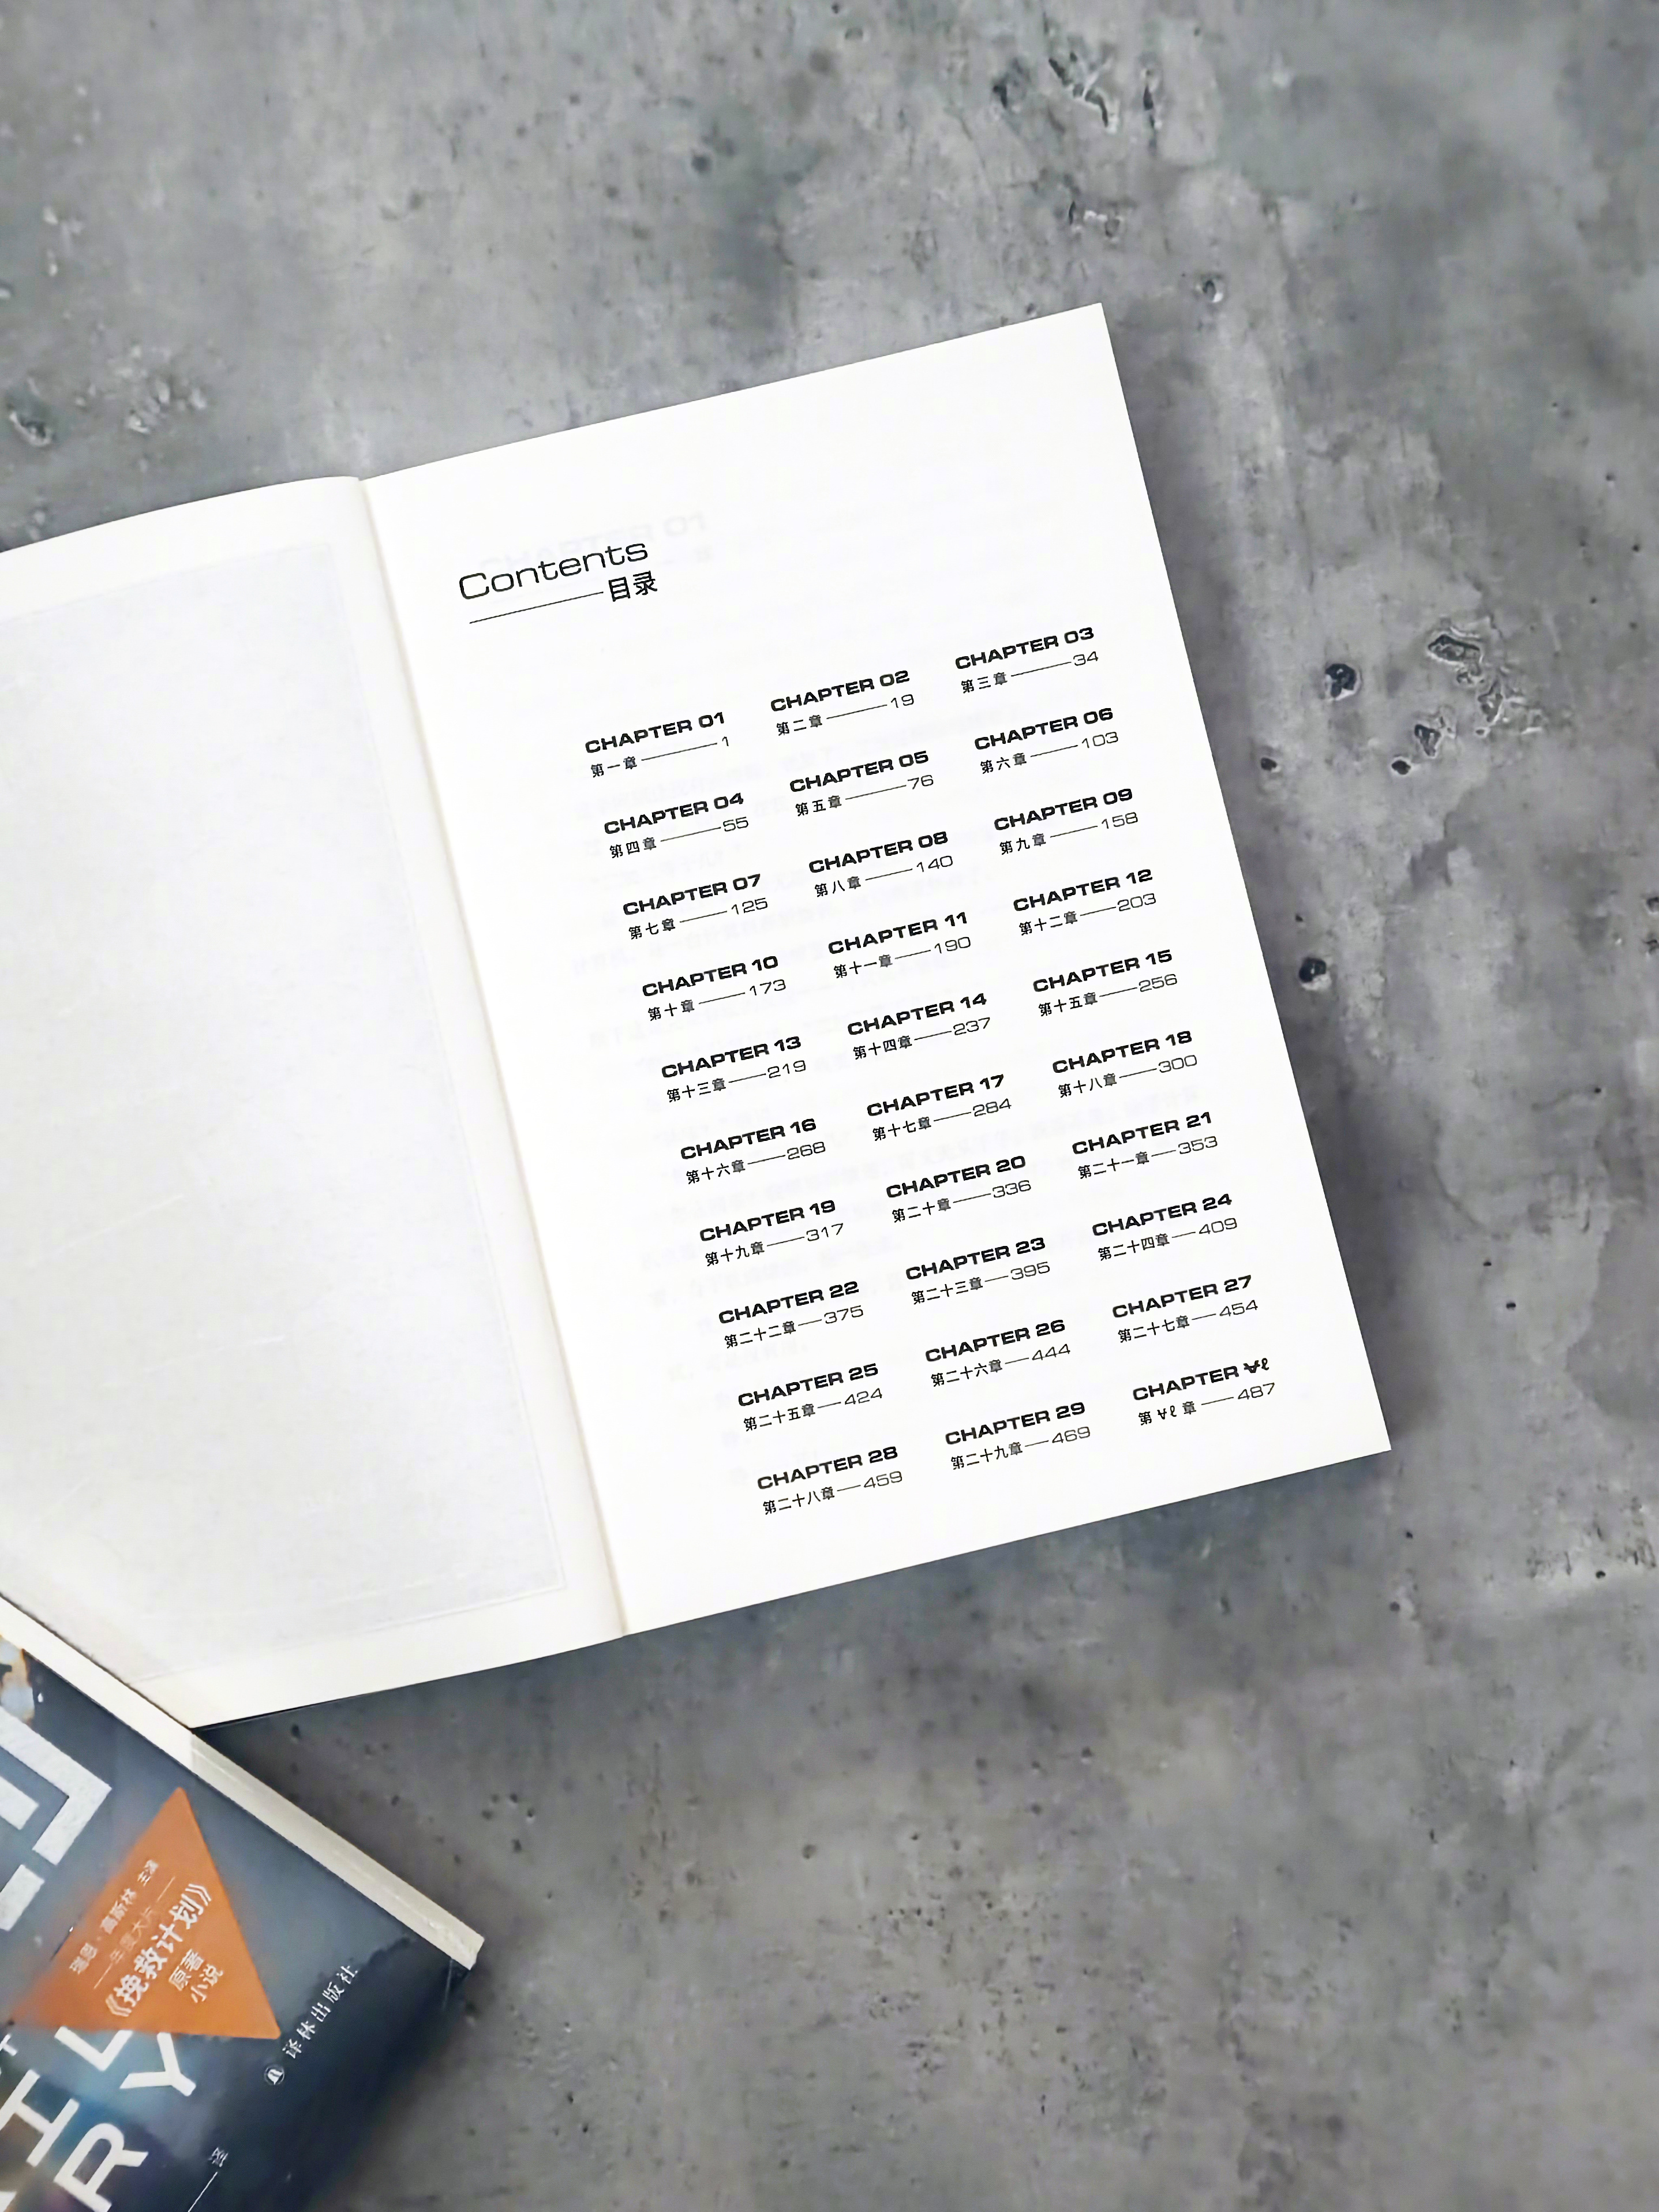 Contents
目录
CHAPTER 01
第一章 1
CHAPTER 02
第二章 19
CHAPTER 03
第三章 34
CHAPTER 04
第四章 55
CHAPTER 05
第五章 76
CHAPTER 06
第六章 103
CHAPTER 07
第七章 125
CHAPTER 08
第八章 140
CHAPTER 09
第九章 158
CHAPTER 10
第十章 173
CHAPTER 11
第十一章 190
CHAPTER 12
第十二章 203
CHAPTER 13
第十三章 219
CHAPTER 14
第十四章 237
CHAPTER 15
第十五章 256
CHAPTER 16
第十六章 268
CHAPTER 17
第十七章 284
CHAPTER 18
第十八章 300
CHAPTER 19
第十九章 317
CHAPTER 20
第二十章 336
CHAPTER 21
第二十一章 353
CHAPTER 22
第二十二章 375
CHAPTER 23
第二十三章 395
CHAPTER 24
第二十四章 409
CHAPTER 25
第二十五章 424
CHAPTER 26
第二十六章 444
CHAPTER 27
第二十七章 454
CHAPTER 28
第二十八章 459
CHAPTER 29
第二十九章 469
CHAPTER Vℓ
第 Vℓ 章 487
瑞恩·高斯林 主演
年度大片
《挽救计划》
原著
小说
译林出版社
IL
RY